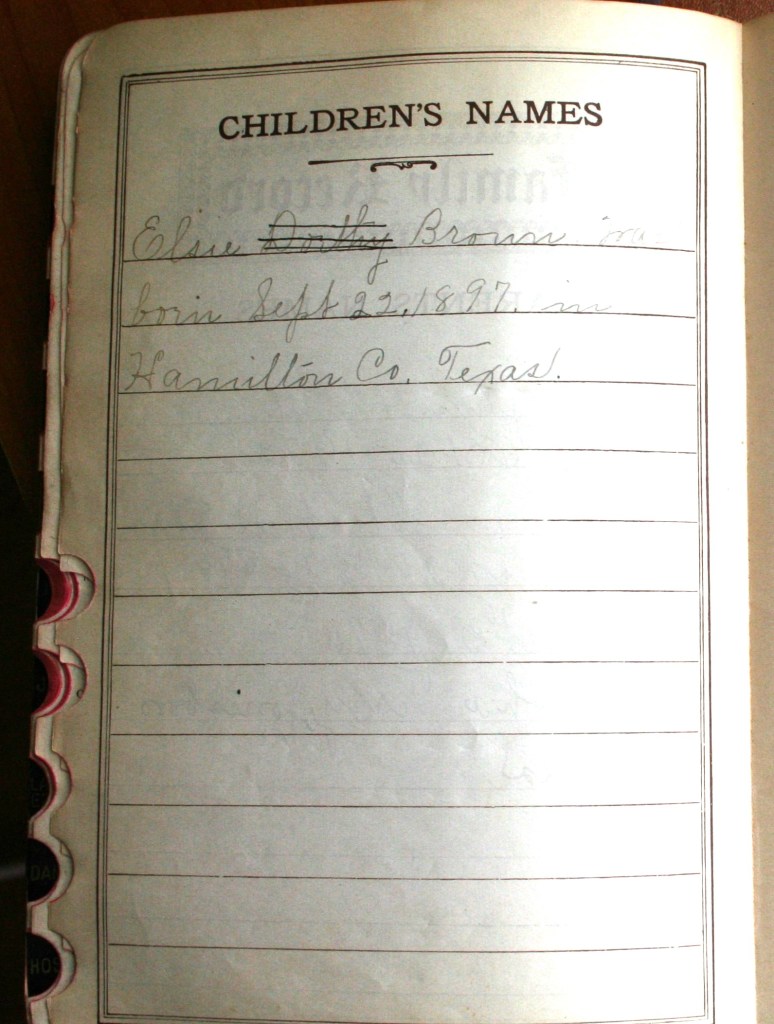 CHILDREN'S NAMES
Elsie Dorthy Brown was
born Sept 22, 1897. in
Hamilton Co. Texas.
DAN
HOS